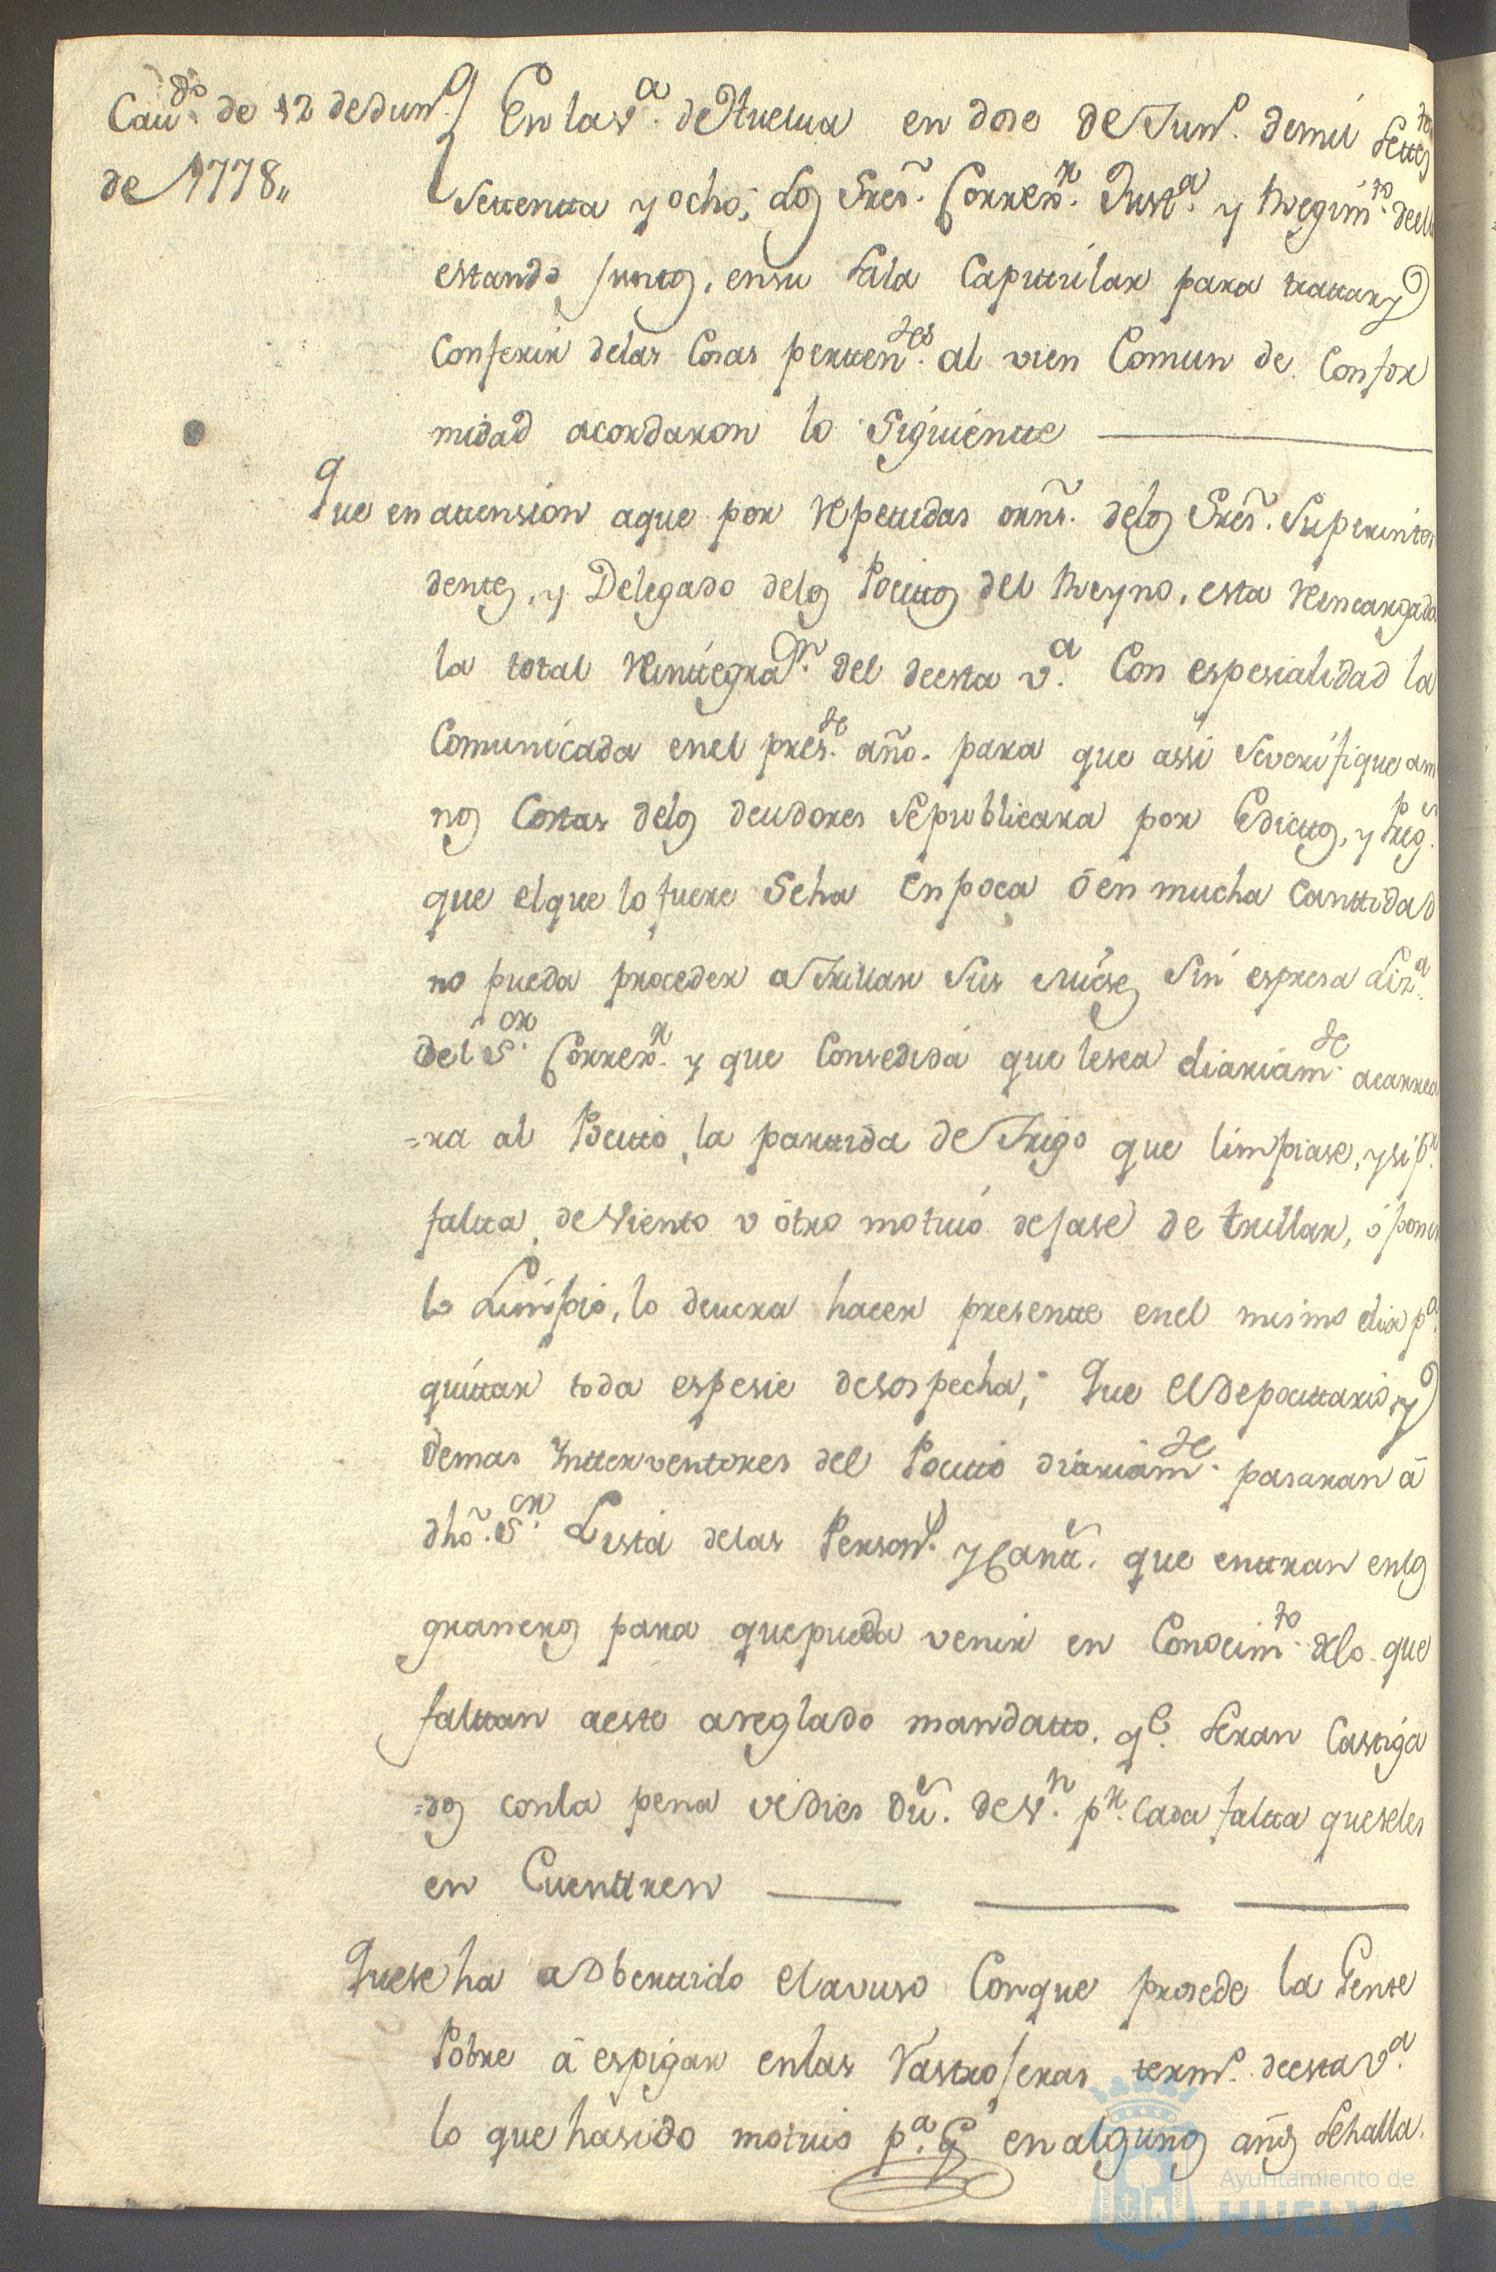 Cau.do de 12 de Jun.o
de 1778,,
En la v.a de Huelua en dose de Jun.o de mil settes
settentta y ocho; los Sres. Correx.r Just.a y Regim.to de ella
estando juntos, en su sala Capittular para trattar y
Conferir de las Cosas pertten.tes al vien Comun de Confor
midad acordaron lo siguientte
Que en attension a que por repetidas orns. de los Sres. Superinten
dentes, y Delegado de los Pocittos del Reyno, esta reencargada
la total reinttegra.on del de esta v.a Con espesialidad la
Comunicada en el pres.te año. para que assi se verifique am
nos Costas de los deudores se publicara por Edicttos, y Preg.s
que el que lo fuere seha en poca ó en mucha canttidad
no pueda proceder a Trillar sus Mieses sin espresa Liz.a
del S.or Correx.r y que Consedida que le sea diariam.te acarrea
=ra al Pocitto, la parttida de Trigo que limpiase, y si p.r
faltta de viento v ótro motiuo dejase de trillar, ó poner
lo Limpio, lo deuera hacer presentte en el mismo dia p.a
quittar toda espesie de sospecha; Que el Depocittario y
demas Intterventores del Pocitto diariam.te pasaran á
dho. S.or Lista de las Person.s y Cantt.s que enttran en los
graneros para que pueda venir en Conocim.to de lo que
falttan a este areglado mandatto. q.e seran Castiga
=dos con la pena de dies Du.s de v.n p.r cada faltta que se les
en Cuenttren
Que se ha adberttido el avuso Con que prosede la Gente
Pobre á espigar en las Rastrojeras term.o de esta v.a
lo que ha sido motiuo p.a q en algunos años se halla.
Ayuntamiento de
HUELVA